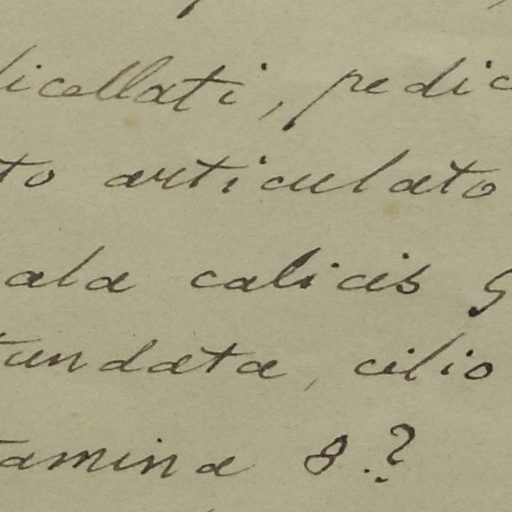 licellati, pedic
to articulato
ala calicis 5
tundata, cilio
tamina 8.?